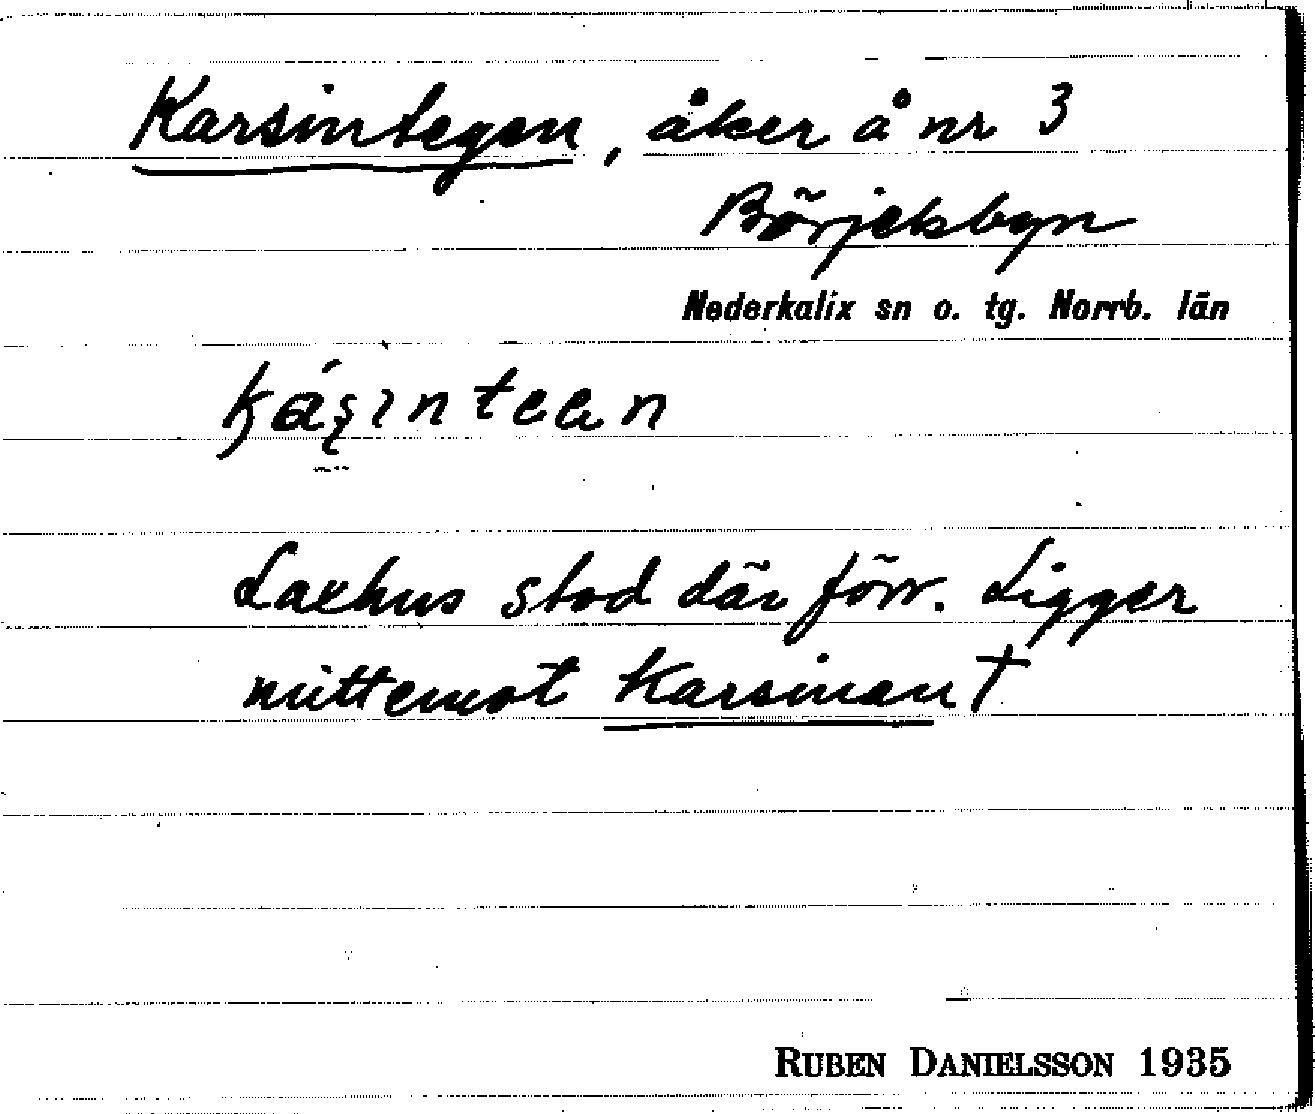 Karsintegen, åker å nr 3
Börjelsbyn
Nederkalix sn o. tg. Norrb. län
Laehus stod där förr. Ligger
mittemot Karsinen †
RUBEN DANIELSSON 1935